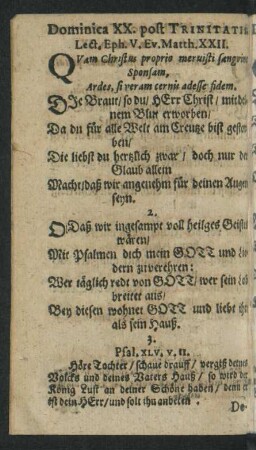 Dominica XX. post TRINITATIS
Lect. Eph. V. Ev. Matth. XXII.
QVam Christus proprio meruisti sanguine
Sponsam,
Ardes, si veram cernis adesse fidem.
DIe Braut / so du / HErr Christ / mit dei-
nem Blut erworben /
Da du für alle Welt am Creutze bist gestor-
ben /
Die liebst du hertzlich zwar / doch nur der
Glaub allein
Macht / daß wir angenehm für deinen Augen
seyn.
2.
O Daß wir ingesampt voll heilges Geistes
wären /
Mit Psalmen dich mein GOTT und Lie-
dern zuverehren:
Wer täglich redt von GOTT / wer sein Lob
breitet aus /
Bey diesen wohnet GOTT und liebt ihn
als sein Hauß.
3.
Psal. XLV. v. 11.
Höre Tochter / schaue drauff / vergiß deines
Volcks und deines Vaters Hauß / so wird der
König Lust an deiner Schöne haben / denn er
ist dein HErr / und solt ihn anbeten.
De-